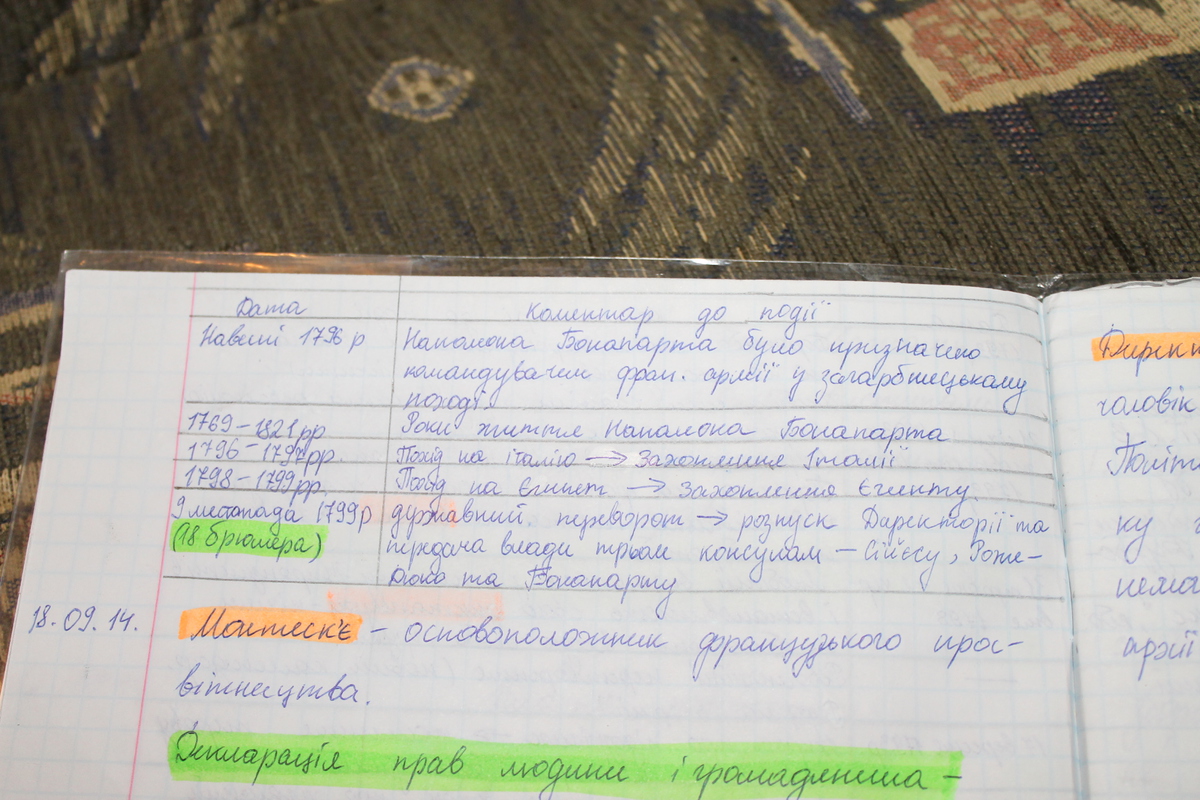 Дата Коментар до події
Навесні 1796 р Наполеона Бонапарта було призначено
командувачем фран. армії у загарбницькому
поході.
1769-1821 рр. Роки життя Наполеона Бонапарта
1796-1797 рр. Похід на італію → Захоплення Італії
1798-1799 рр. Похід на Єгипет → Захоплення Єгипту
9 листопада 1799 р державний переворот → розпуск Директорії та
(18 брюмера) передача влади трьом консулам - Сійєсу, Роже-
Дюко та Бонапарту
18.09.14. Монтеск'є - основоположник французького прос-
вітництва.
Декларація прав людини і громадянина -
чоловік
Політ
ку
нема
армії